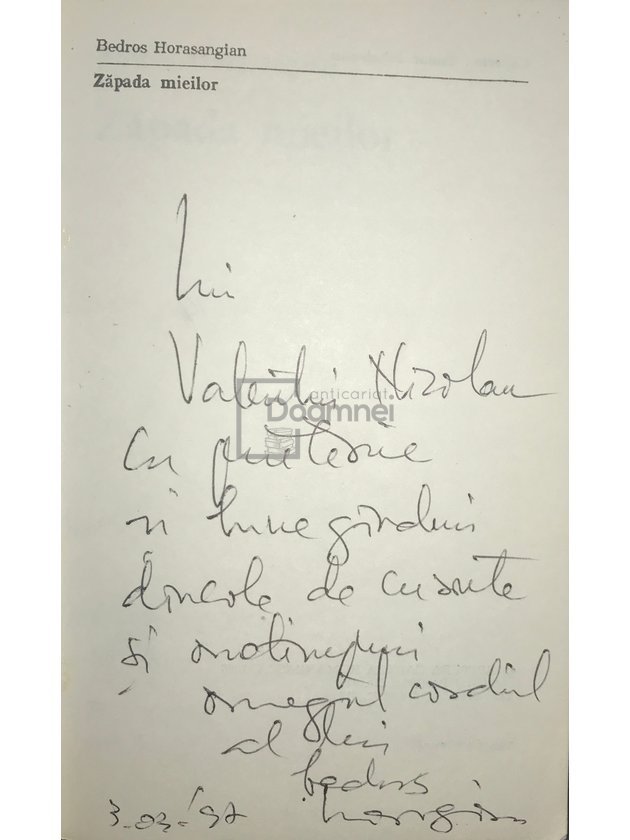 Bedros Horasangian
Zăpada mieilor
Lui
Valentin Nicolau
cu prietenie
și bune gînduri
dincolo de cuvinte
și
omagiul cordial
al lui
bedros
horasangian
3.03.'97
anticariat
Doamnei